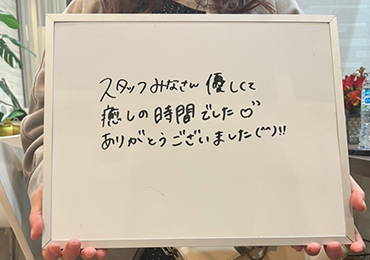 スタッフみなさん優しくて
癒しの時間でした♡
ありがとうございました(^^)!!